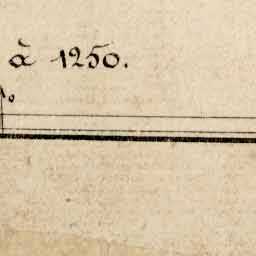 à 1250.